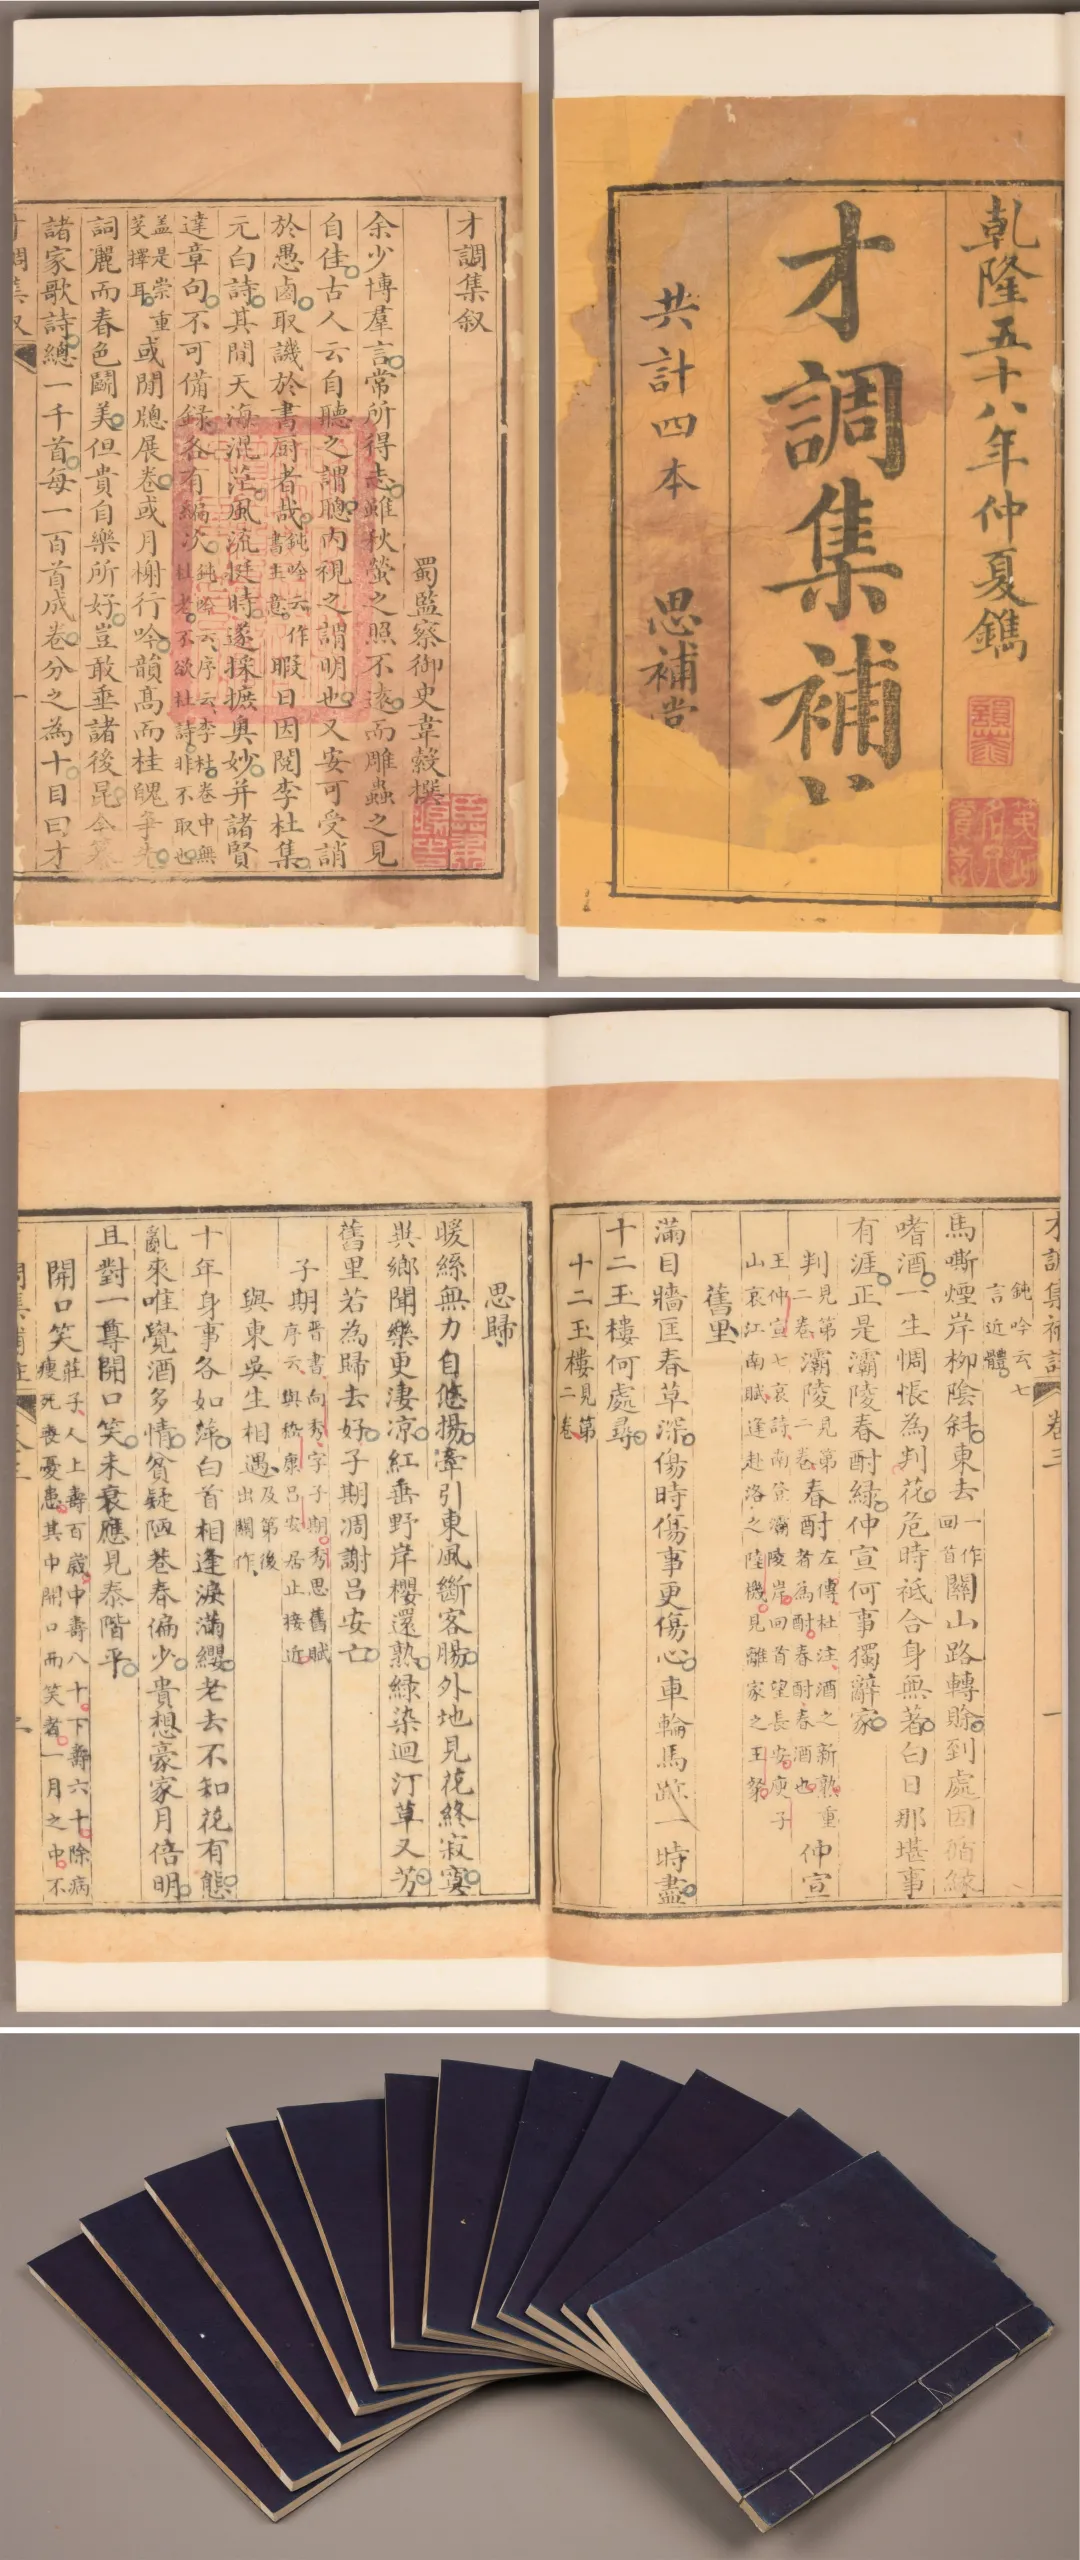 乾隆五十八年仲夏鐫
才調集補
共計四本 思補堂
才調集叙
蜀監察御史韋縠撰
余少博羣言常所得志雖秋螢之照不遠而雕蟲之見
自佳古人云自聽之謂聰內視之謂明也又安可受誚
於愚鹵取譏於書厨者哉鈍吟云作書主意暇日因閱李杜集
元白詩其閒天海混茫風流挺特遂採摭奥妙并諸賢
達章句不可備録各有編次鈍吟云序云李杜卷中無杜老不欲杜詩非不取也
盖是崇重擇耳或閒牕展卷或月榭行吟韻高而桂魄爭光
詞麗而春色鬬美但貴自樂所好豈敢垂諸後昆今纂
諸家歌詩總一千首每一百首成卷分之為十目曰才
才調集叙 一
才調集補註 卷三 一
鈍吟云七言近體
馬嘶煙岸柳陰斜東去一作回首關山路轉賒到處因循緣
嗜酒一生惆悵為判花危時祗合身無著白日那堪事
有涯正是灞陵春酎綠仲宣何事獨辭家
判見第二卷灞陵見第二卷春酎左傳杜注酒之新熟重者為酎春酎春酒也仲宣
王仲宣七哀詩南登灞陵岸回首望長安庾子山哀江南賦逢赴洛之陸機見離家之王粲
舊里
滿目牆匡春草深傷時傷事更傷心車輪馬跡一時盡
十二玉樓何處尋
十二玉樓見第二卷
思歸
暖絲無力自悠揚牽引東風斷客腸外地見花終寂寞
異鄉聞樂更淒凉紅垂野岸櫻還熟綠染迴汀草又芳
舊里若為歸去好子期凋謝吕安亡
子期晋書向秀字子期秀思舊賦序云與嵇康吕安居止接近
與東吳生相遇及第後出關作
十年身事各如萍白首相逢淚滿纓老去不知花有態
亂來唯覺酒多情貧疑陋巷春偏少貴想豪家月倍明
且對一尊開口笑未衰應見泰階平
開口笑莊子人上壽百歲中壽八十下壽六十除病瘦死喪憂患其中開口而笑者一月之中不
才調集補註